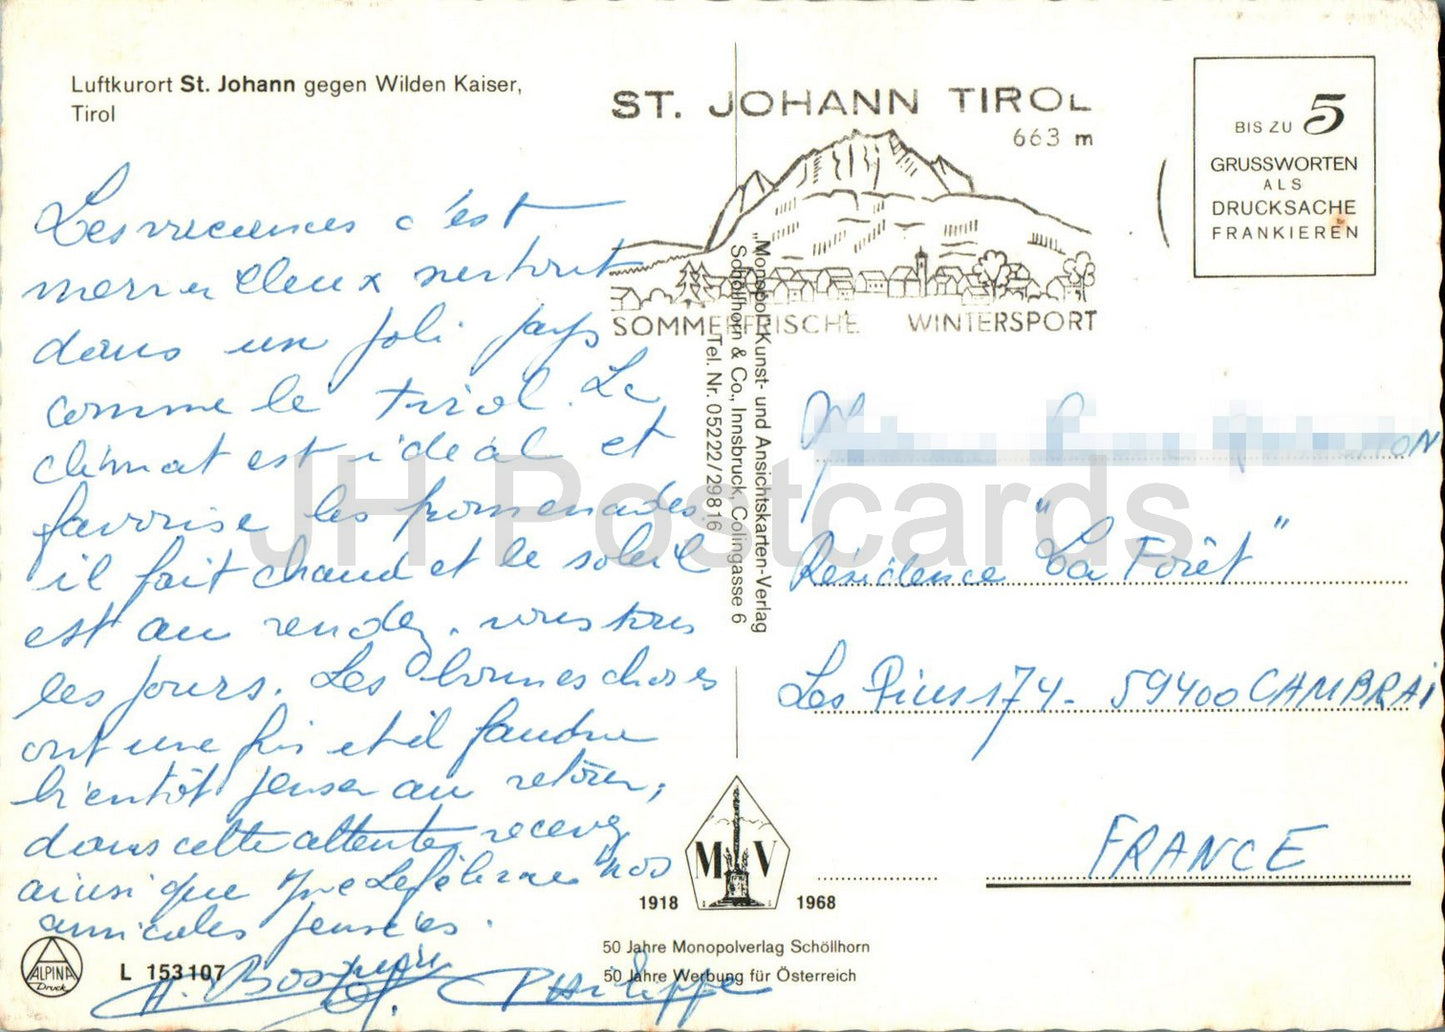 Luftkurort St. Johann gegen Wilden Kaiser,
Tirol
ST. JOHANN TIROL
663 m
SOMMERFRISCHE WINTERSPORT
BIS ZU 5
GRUSSWORTEN
ALS
DRUCKSACHE
FRANKIEREN
Les vacances c'est
merveilleux surtout
dans un joli pays
comme le Tirol. Le
climat est idéal et
favorise les promenades.
il fait chaud et le soleil
est au rendez-vous tous
les jours. Les bonnes choses
ont une fin et il faudra
bientôt penser au retour,
dans cette attente recevez
ainsi que Mme nos
amicales pensées.
Philippe
"Monopol" Kunst- und Ansichtskarten-Verlag
Schöllhorn & Co., Innsbruck, Colingasse 6
Tel. Nr. 05222/29816
Résidence "La Forêt"
174 - 59400 CAMBRAI
FRANCE
M V
1918 1968
50 Jahre Monopolverlag Schöllhorn
50 Jahre Werbung für Österreich
ALPINA
Druck
L 153107
JH Postcards